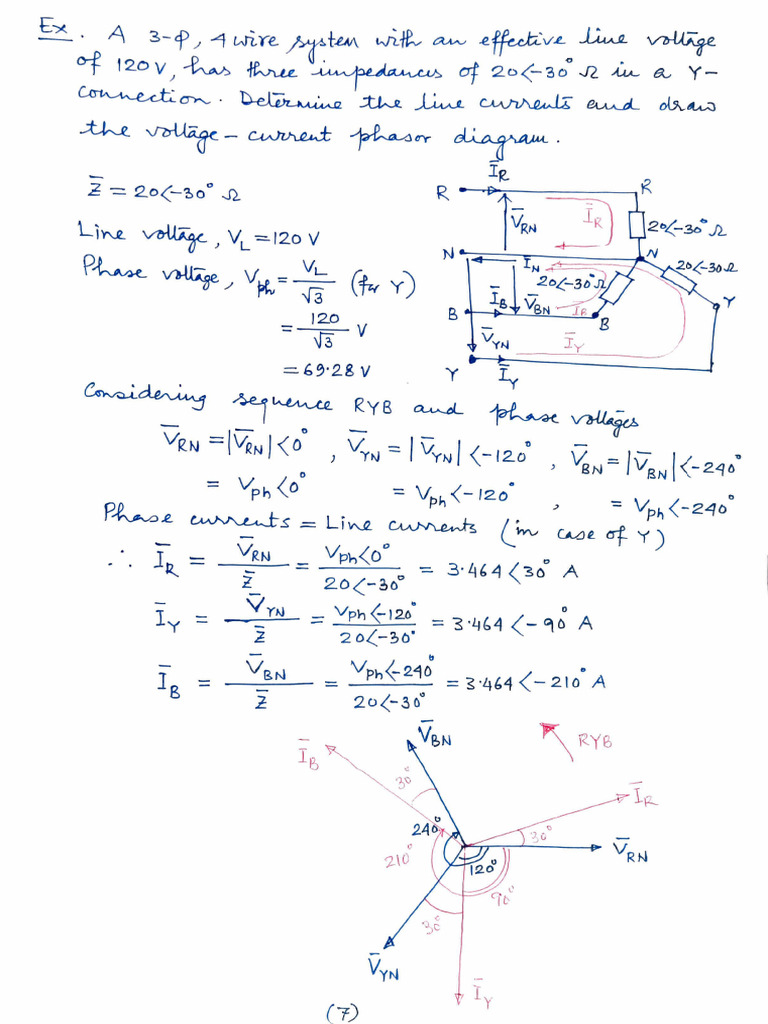 Ex. A 3-φ, 4 wire system with an effective line voltage
of 120 V, has three impedances of 20<-30° Ω in a Y-
connection. Determine the line currents and draw
the voltage-current phasor diagram.
Z̄ = 20<-30° Ω
Line voltage, V_L = 120 V
Phase voltage, V_ph = V_L/√3 (for Y)
= 120/√3 V
= 69.28 V
Ī_R
R
R
V̄_RN
Ī_R
20<-30° Ω
N
Ī_N
N
20<-30° Ω
20<-30 Ω
Ī_B
V̄_BN
Ī_B
Y
B
B
V̄_YN
Ī_Y
Y
Ī_Y
Considering sequence RYB and phase voltages
V̄_RN = |V̄_RN|<0°, V̄_YN = |V̄_YN|<-120°, V̄_BN = |V̄_BN|<-240°
= V_ph<0° = V_ph<-120°, = V_ph<-240°
Phase currents = Line currents (in case of Y)
∴ Ī_R = V̄_RN/Z̄ = V_ph<0°/20<-30° = 3.464<30° A
Ī_Y = V̄_YN/Z̄ = V_ph<-120°/20<-30° = 3.464<-90° A
Ī_B = V̄_BN/Z̄ = V_ph<-240°/20<-30° = 3.464<-210° A
V̄_BN
RYB
Ī_B
30°
Ī_R
240°
30°
V̄_RN
210°
120°
90°
30°
V̄_YN
Ī_Y
(7)